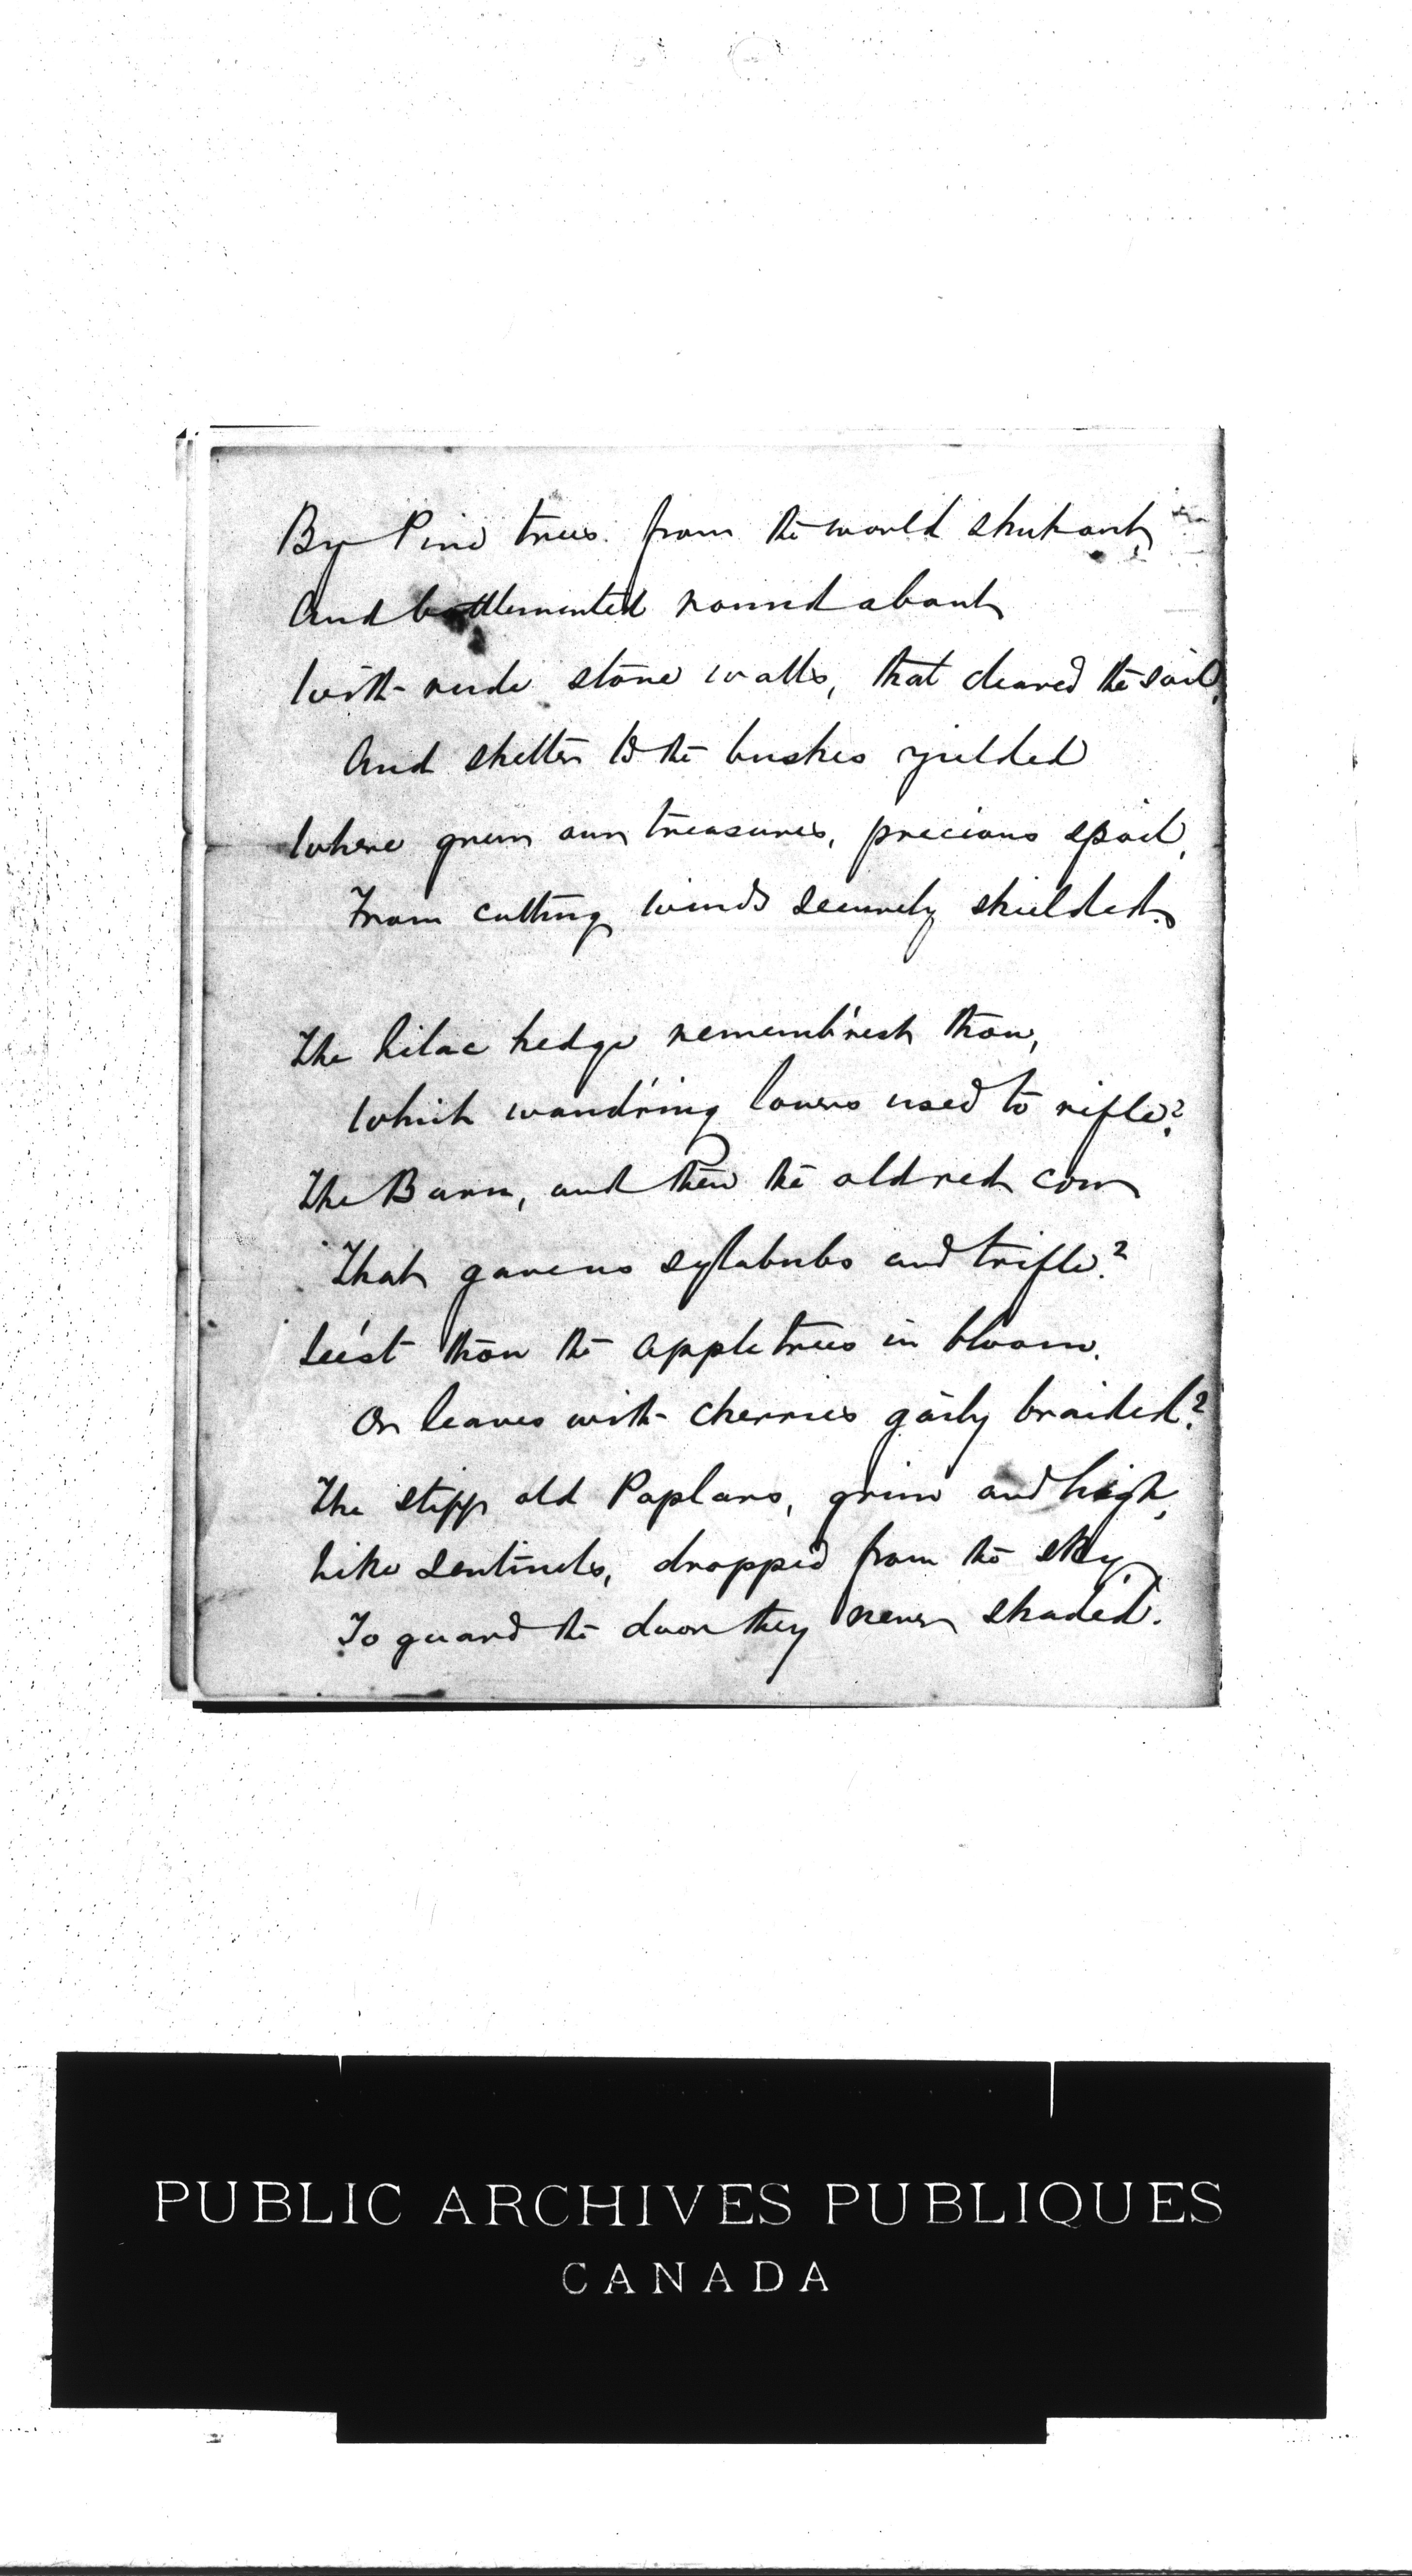 By Pine trees from the world shut out,
And battlemented round about
With rude stone walls, that cleared the soil,
And shelter to the bushes yielded
Where grew our treasures, precious spoil,
From cutting winds securely shielded.
The Lilac hedge rememb'rest thou,
Which wand'ring lovers used to rifle?
The Barn, and then the old red cow
That gave us sylabubs and trifle?
See'st thou the apple trees in bloom,
Or leaves with cherries gaily braided?
The stiff old Poplars, grim and high,
Like Sentinels, dropped from the sky
To guard the door they never shaded.
PUBLIC ARCHIVES PUBLIQUES
CANADA